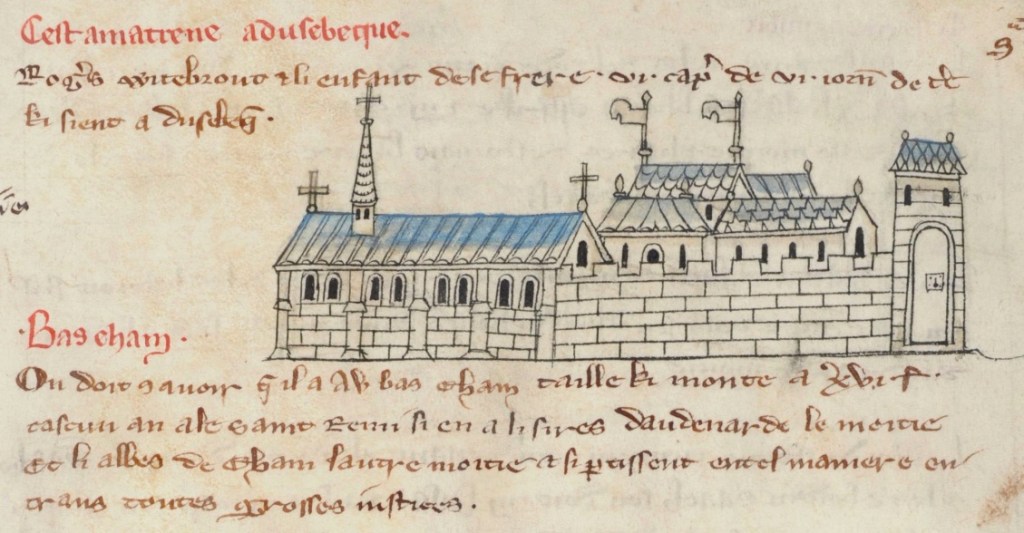 Cest amatrene a dusebecque.
Rog's Witebrout & li enfant de se frere · vi · cap' de · vi · iorn' de
ki sient a
· Bas eham ·
On doit 9 avoir q̄ il a Aw bas Eham taille ki monte a
cascun an ale saint Remi si en a li sires daudenarde le moitie
Et li abbes de Eham lautre moitie & si ptissent en tel maniere en
trans toutes grosses iustices .